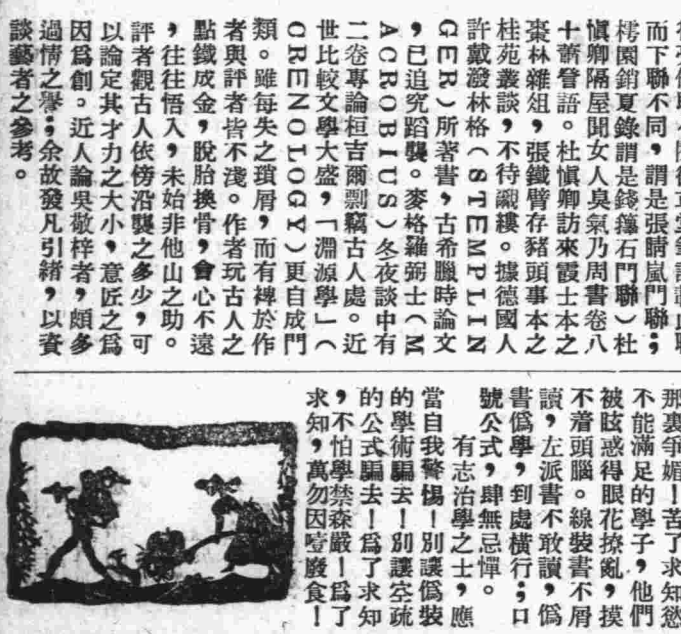 而下聯不同，謂是張晴嵐門聯；
樗園銷夏錄謂是錢籜石門聯）杜
愼卿隔屋聞女人臭氣乃周書卷八
十蕭詧語。杜愼卿訪來霞士本之
棗林雜俎，張鐵臂存豬頭事本之
桂苑叢談，不待覼縷。據德國人
許戴潑林格（STEMPLIN
GER）所著書，古希臘時論文
，已追究蹈襲。麥格羅弼士（M
ACROBIUS）冬夜談中有
二卷專論桓吉爾剽竊古人處。近
世比較文學大盛，「淵源學」（
CRENOLOGY）更自成門
類。雖每失之瑣屑，而有裨於作
者與評者皆不淺。作者玩古人之
點鐵成金，脫胎換骨，會心不遠
，往往悟入，未始非他山之助。
評者觀古人依傍沿襲之多少，可
以論定其才力之大小，意匠之爲
因爲創。近人論吳敬梓者，頗多
過情之譽；余故發凡引緒，以資
談藝者之參考。
那裏爭媚！苦了求知慾
不能滿足的學子，他們
被眩惑得眼花撩亂，摸
不着頭腦。線裝書不屑
讀，左派書不敢讀，僞
書僞學，到處橫行；口
號公式，肆無忌憚。
有志治學之士，應
當自我警惕！別讓僞裝
的學術騙去！別讓空疏
的公式騙去！爲了求知
，不怕學禁森嚴！爲了
求知，萬勿因噎廢食！